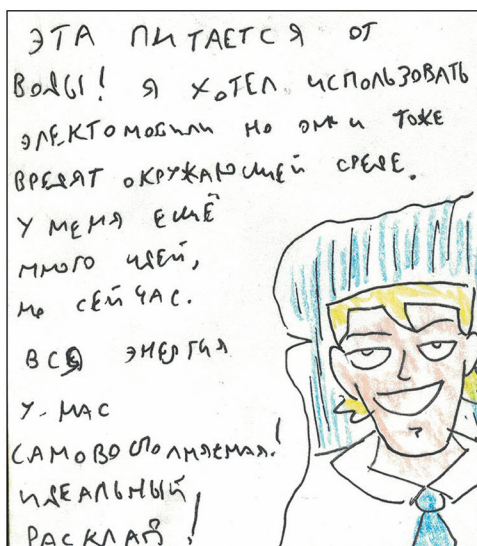 ЭТА ПИТАЕТСЯ ОТ
ВОДЫ! Я ХОТЕЛ ИСПОЛЬЗОВАТЬ
ЭЛЕКТОМОБИЛИ НО ОНИ ТОЖЕ
ВРЕДЯТ ОКРУЖАЮЩЕЙ СРЕДЕ.
У МЕНЯ ЕЩЁ
МНОГО ИДЕЙ,
НО СЕЙЧАС.
ВСЯ ЭНЕРГИЯ
У-НАС
САМОВОСПОЛНЯЕМАЯ!
ИДЕАЛЬНЫЙ
РАСКЛАД!